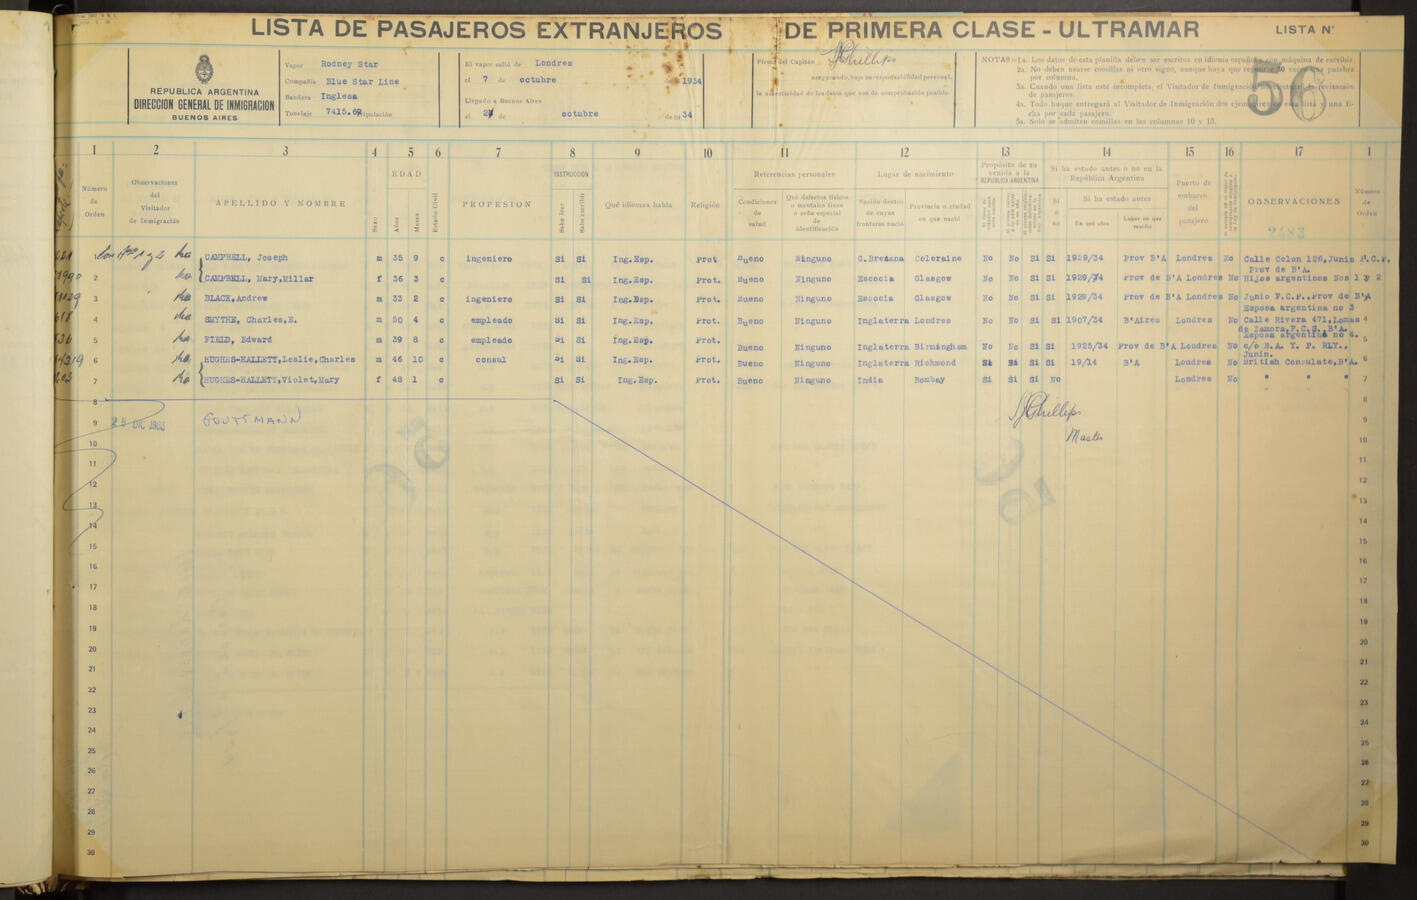 LISTA DE PASAJEROS EXTRANJEROS DE PRIMERA CLASE - ULTRAMAR LISTA Nº
REPUBLICA ARGENTINA
DIRECCION GENERAL DE INMIGRACION
BUENOS AIRES
Vapor Rodney Star
Compañía Blue Star Line
Bandera Inglesa
Tonelaje 7415.69 Tripulación
El vapor salió de Londres
el 7 de octubre de 1934
Llegado a Buenos Aires
el de octubre de 19 34
Firma del Capitán Phillips
asegurando, bajo su responsabilidad personal,
la autenticidad de los datos que son de comprobación posible.
NOTAS: 1a. Los datos de esta planilla deben ser escritos en idioma español con máquina de escribir.
2a. No deben usarse comillas ni otro signo, aunque haya que repetirse 30 veces una palabra
por columna.
3a. Cuando una lista esté incompleta, el Visitador de Inmigración revisación
de pasajeros.
4a. Todo buque entregará al Visitador de Inmigración dos lista y una fi-
cha por cada pasajero.
5a. Solo se admiten comillas en las columnas 10 y 15.
56
1 2 3 4 5 6 7 8 9 10 11 12 13 14 15 16 17 1
Número de Orden
Observaciones del Visitador de Inmigración
APELLIDO Y NOMBRE
Sexo
EDAD
Años
Meses
Estado Civil
PROFESION
INSTRUCCION
Sabe leer
Sabe escribir
Qué idiomas habla
Religión
Referencias personales
Condiciones de salud
Qué defectos físicos o mentales tiene o seña especial de identificación
Lugar de nacimiento
Nación dentro de cuyas fronteras nació
Provincia o ciudad en que nació
Propósito de su venida a la REPUBLICA ARGENTINA
Si ha estado antes o no en la República Argentina
Si o no
Si ha estado antes
En qué años
Lugar en que residió
Puerto de embarco del pasajero
OBSERVACIONES
2483
Número de Orden
1 CAMPBELL, Joseph m 35 9 c ingeniero Si Si Ing.Esp. Prot Bueno Ninguno G.Bretana Coleraine No No Si Si 1929/34 Prov B'A Londres No Calle Colon 126, Junio F.C.P.
Prov de B'A.
2 CAMPBELL, Mary,Millar f 36 3 c Si Si Ing.Esp. Prot. Bueno Ninguno Escocia Glasgow No No Si Si 1929/34 Prov de B'A Londres No Hijos argentinos Nos 1 y 2
3 BLACK,Andrew m 33 2 c ingeniero Si Si Ing.Esp. Prot. Bueno Ninguno Escocia Glasgow No No Si Si 1929/34 Prov de B'A Londres No Junio F.C.P..Prov de B'A
Esposa argentina no 3
4 SMYTHE, Charles,E. m 50 4 c empleado Si Si Ing.Esp. Prot. Bueno Ninguno Inglaterra Londres No No Si Si 1907/34 B'Aires Londres No Calle Rivera 471,Lomas 4
de Zamora,F.C.S, B'A.
Esposa argentina no 4.
5 FIELD, Edward m 39 8 c empleado Si Si Ing.Esp. Prot. Bueno Ninguno Inglaterra Birmingham No No Si Si 1925/34 Prov de B'A Londres No c/o B.A. Y. P. RLY. 5
Junin.
6 HUGHES-HALLETT,Leslie,Charles m 46 10 c consul Si Si Ing.Esp. Prot. Bueno Ninguno Inglaterra Richmond Si Si Si Si 19/14 B'A Londres No British Consulate,B'A. 6
7 HUGHES-HALLETT,Violet,Mary f 48 1 c Si Si Ing.Esp. Prot. Bueno Ninguno India Bombay Si Si Si No Londres No " " " 7
8 8
9 26 DIC 1983 GOUTSMANN Phillips 9
Master
10 10
11 11
12 12
13 13
14 14
15 15
16 16
17 17
18 18
19 19
20 20
21 21
22 22
23 23
24 24
25 25
26 26
27 27
28 28
29 29
30 30